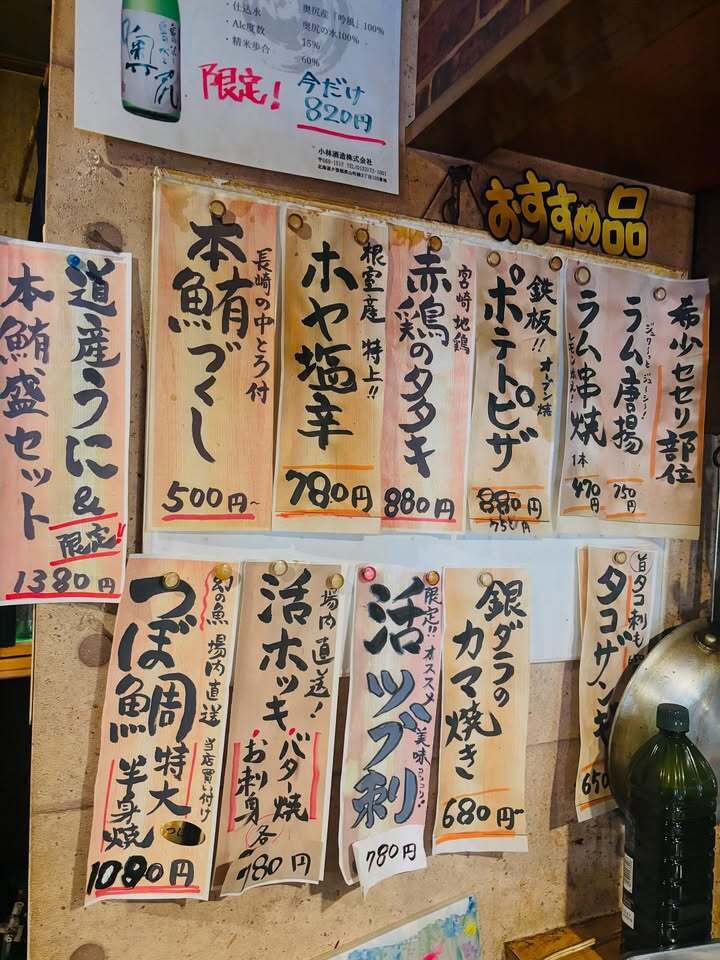 ・仕込水 奥尻産「吟風」100%
・Alc度数 奥尻の水100%
・精米歩合 15%
60%
限定!
今だけ
820円
小林酒造株式会社
おすすめ品
道産うに&
限定!!
本鮪盛セット
1380円
長崎の中とろ付
本鮪づくし
500円~
根室産 特上!!
ホヤ塩辛
780円
宮崎地鶏
赤鶏のタタキ
880円
鉄板!! オーブン焼
ポテトピザ
880円
750円
希少セセリ部位
ジュワーッとジューシー!
ラム唐揚
750円
ラム串焼
1本
470円
幻の魚 場内直送
当店買い付け
つぼ鯛
特大
半身焼
1080円
場内直送!
活ホッキ
バター焼
お刺身
各
780円
限定!! オススメ
美味コリコリ!!
活ツブ刺
780円
銀ダラの
カマ焼き
680円
タコ刺も
タコザンギ
650